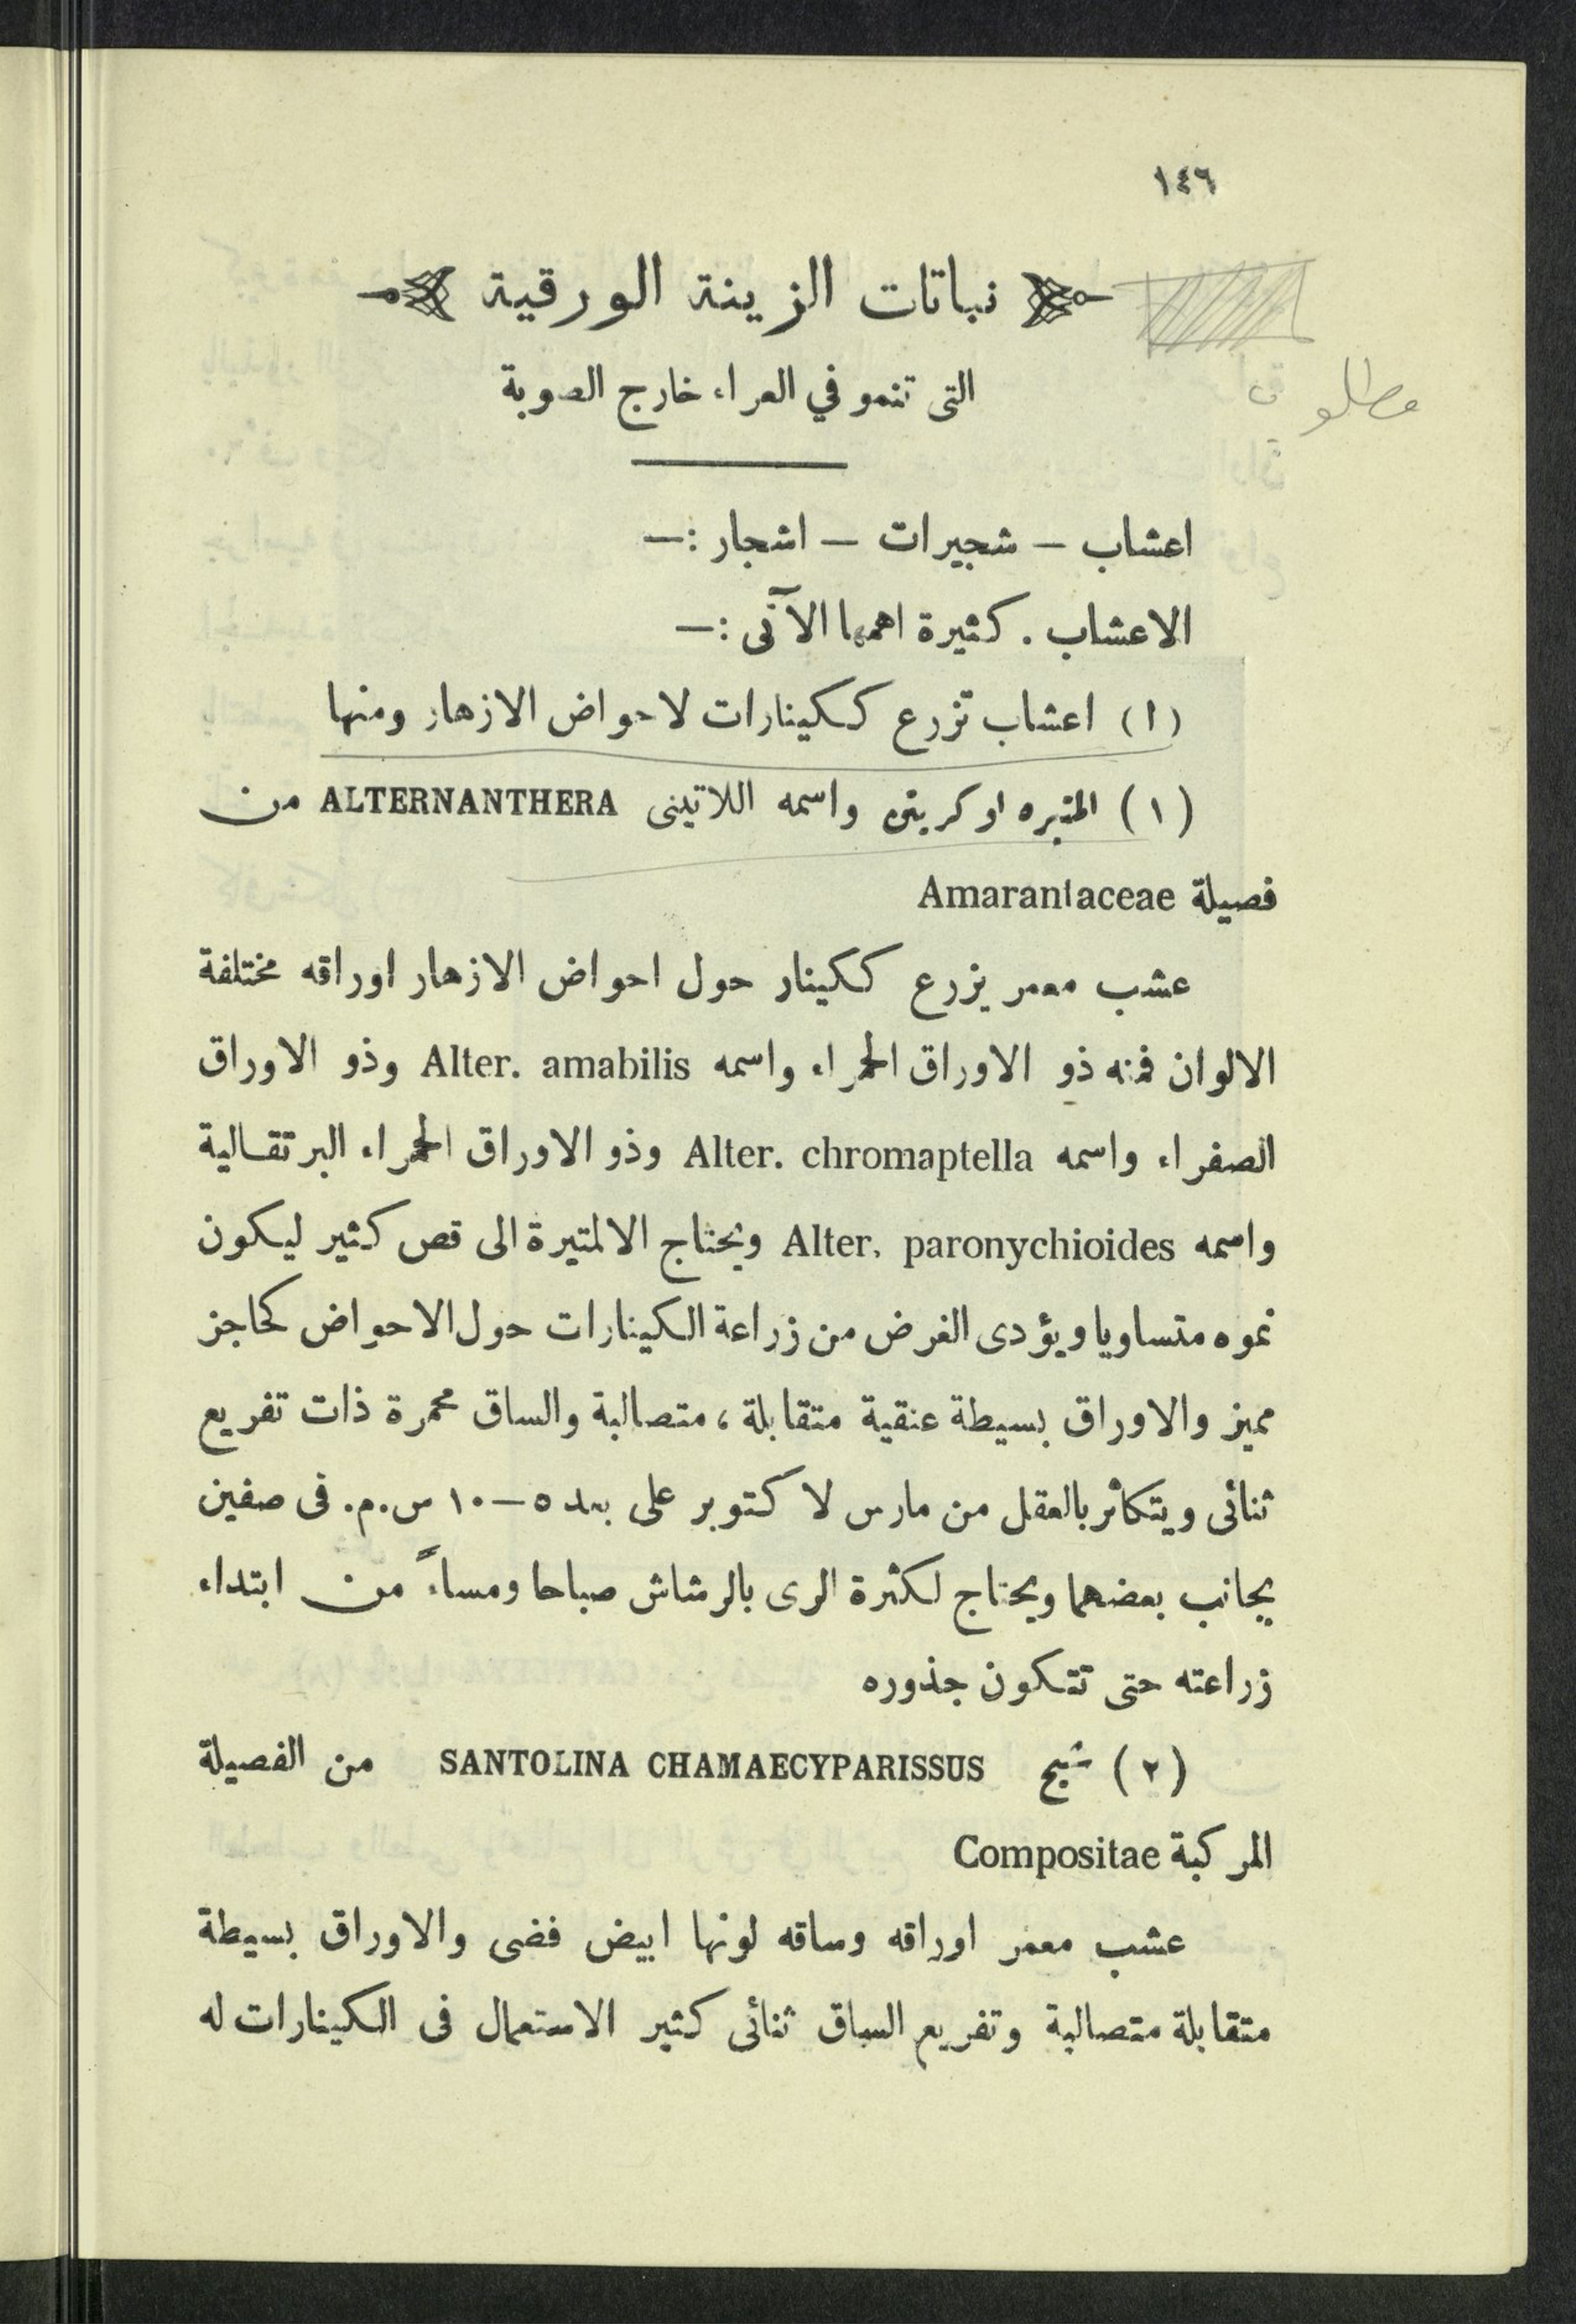 ١٤٦
نباتات الزينة الورقية
التى تنمو في العراء خارج الصوبة
مطلو
اعشاب — شجيرات — اشجار :—
الاعشاب . كثيرة اهمها الآتى :—
(ا) اعشاب تزرع ككينارات لاحواض الازهار ومنها
(١) المتيره او كريتن واسمه اللاتينى ALTERNANTHERA من
فصيلة Amarantaceae
عشب معمر يزرع ككينار حول احواض الازهار اوراقه مختلفة
الالوان فمنه ذو الاوراق الحمراء واسمه Alter. amabilis وذو الاوراق
الصفراء واسمه Alter. chromaptella وذو الاوراق الحمراء البرتقالية
واسمه Alter. paronychioides ويحتاج الالمتيرة الى قص كثير ليكون
نموه متساويا ويؤدى الغرض من زراعة الكينارات حول الاحواض كحاجز
مميز والاوراق بسيطة عنقية متقابلة ، متصالبة والساق محمرة ذات تفريع
ثنائى ويتكاثر بالعقل من مارس لا كتوبر على بعد ٥—١٠ س.م. فى صفين
بجانب بعضهما ويحتاج لكثرة الرى بالرشاش صباحا ومساءً من ابتداء
زراعته حتى تتكون جذوره
(٢) شيح SANTOLINA CHAMAECYPARISSUS من الفصيلة
المركبة Compositae
عشب معمر اوراقه وساقه لونها ابيض فضى والاوراق بسيطة
متقابلة متصالبة وتفريع الساق ثنائى كثير الاستعمال فى الكينارات له